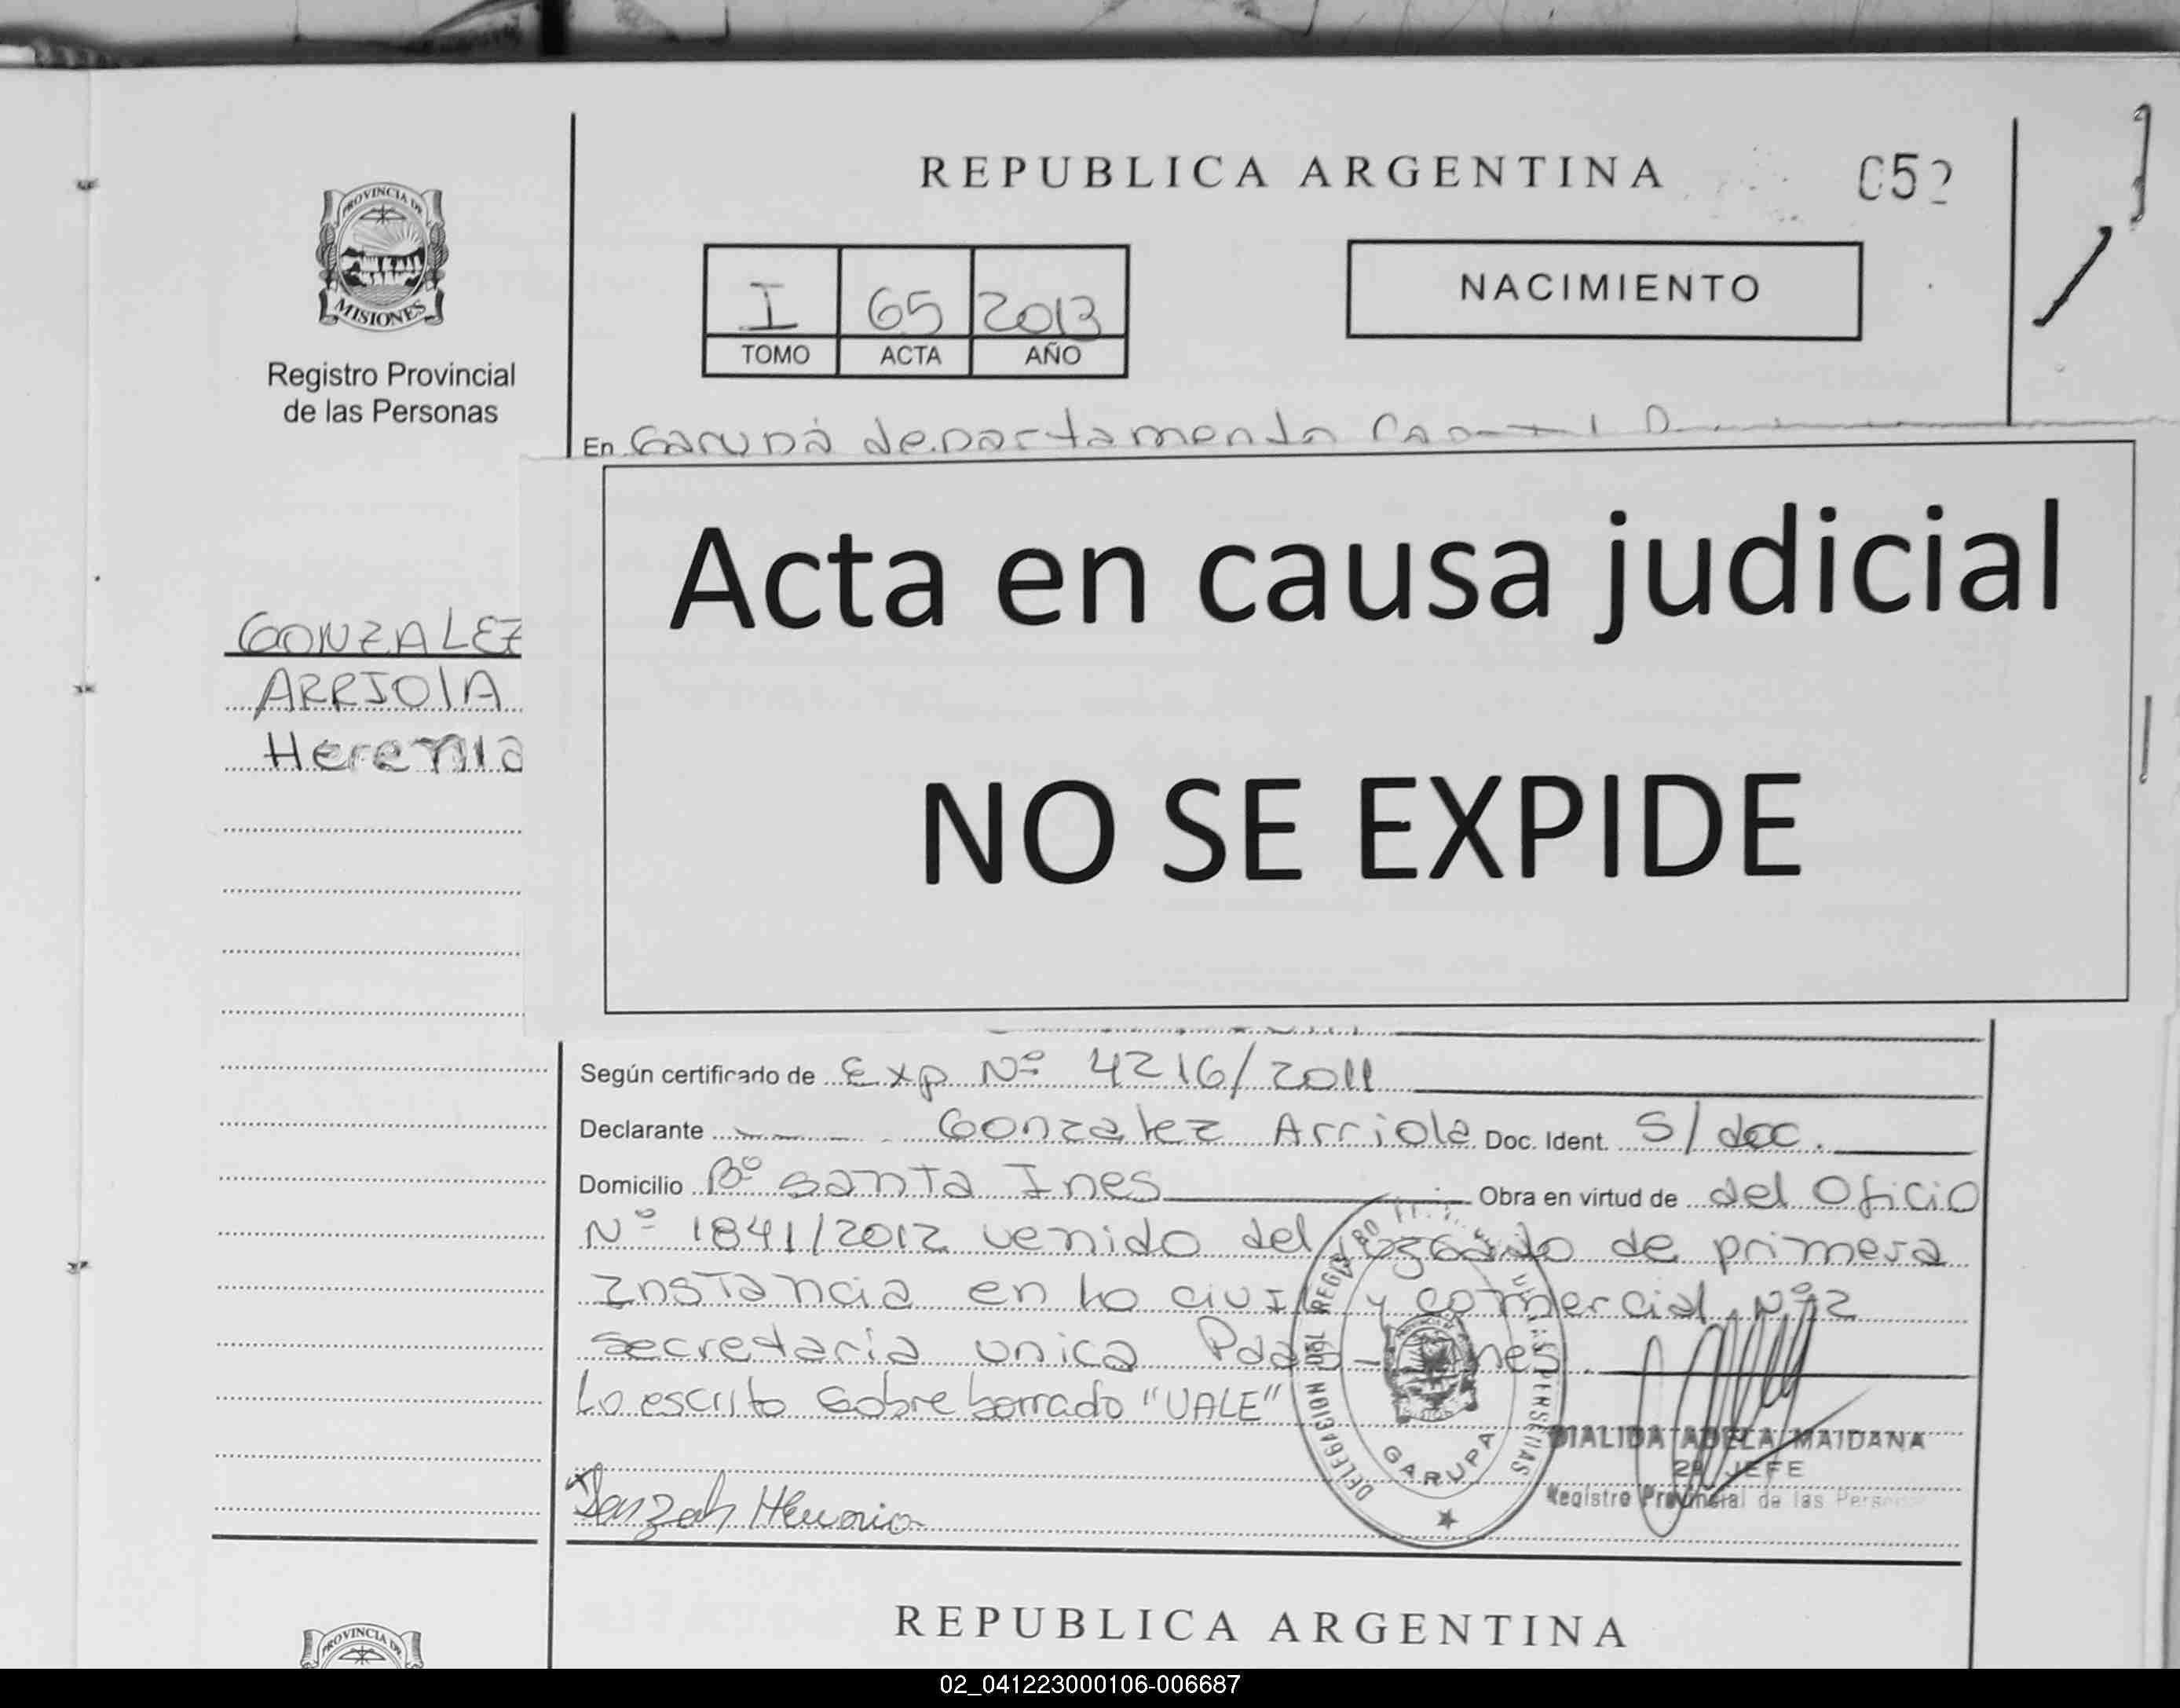 REPUBLICA ARGENTINA
052
PROVINCIA DE
MISIONES
Registro Provincial
de las Personas
I 65 2013
TOMO ACTA AÑO
NACIMIENTO
En Garupá departamento Capital
GONZALEZ
ARRIOlA
Heremia
Acta en causa judicial
NO SE EXPIDE
Según certificado de Exp Nº 4216/2011
Declarante Gonzalez Arriola Doc. Ident. S/doc.
Domicilio Bº Santa Ines Obra en virtud de del Oficio
Nº 1841/2012 venido del Juzgado de primera
Instancia en Lo civil y comercial Nº2
secretaria unica
Lo escrito sobre borrado "VALE"
DELEGACION DEL REGISTRO
DE LAS PERSONAS
GARUPA
DIALIDA ADELA MAIDANA
2º JEFE
Registro Provincial de las Personas
REPUBLICA ARGENTINA
PROVINCIA DE
02_041223000106-006687